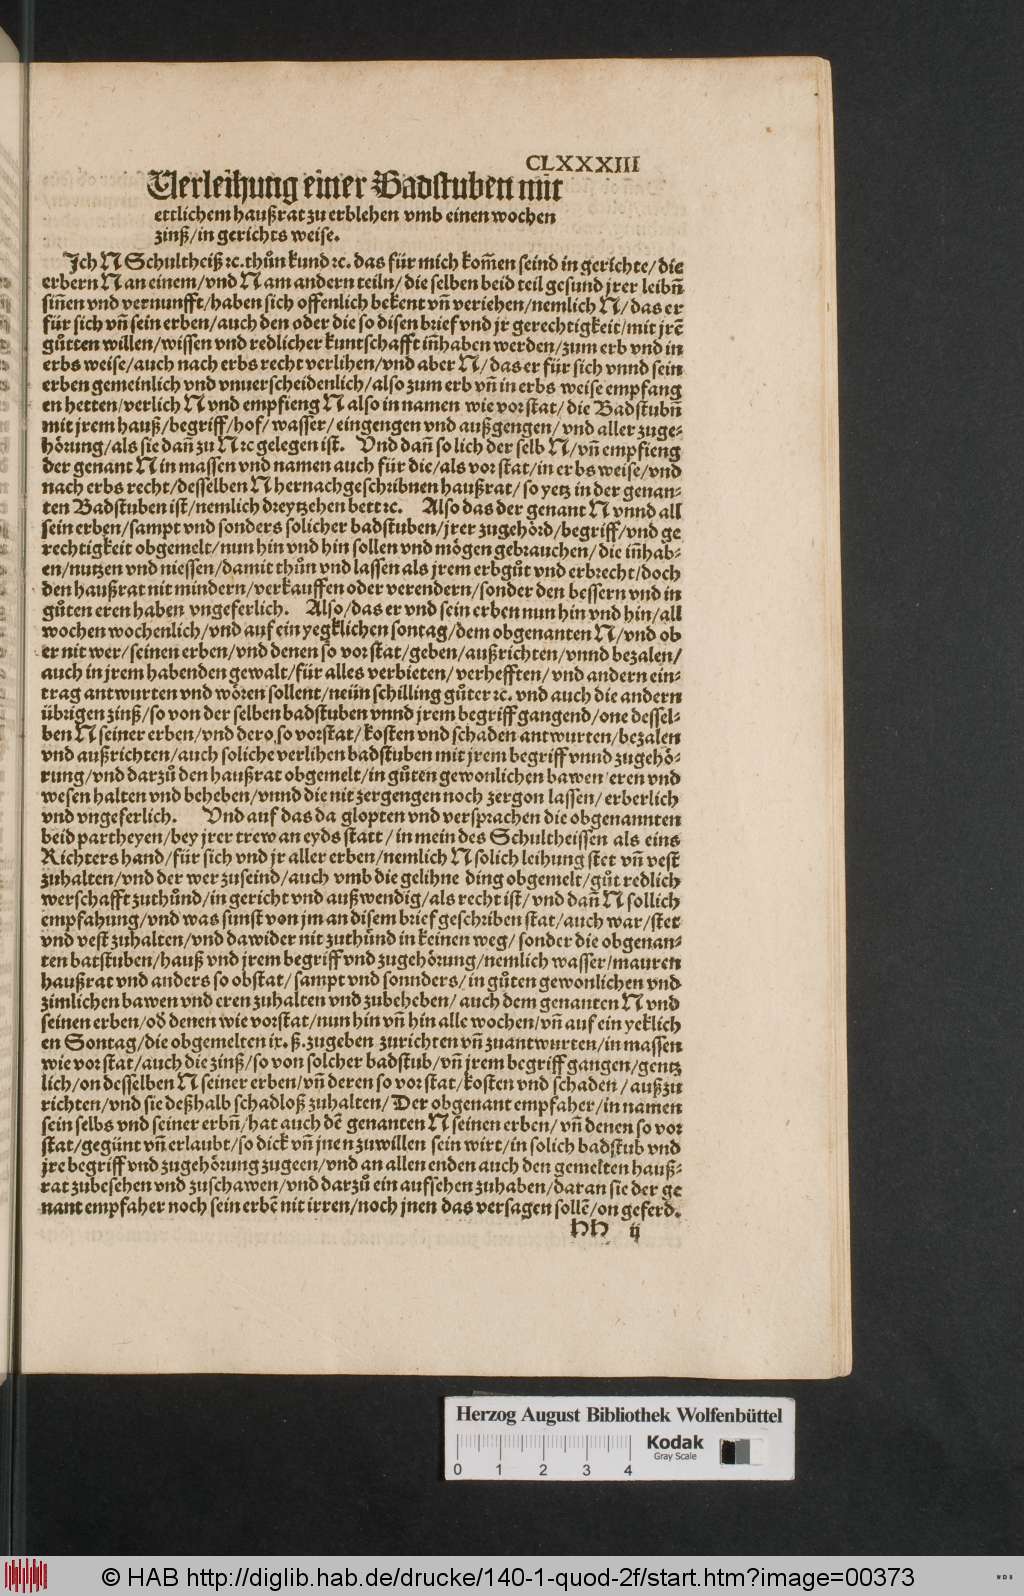 CLXXXIII
Verleihung einer Badstuben mit
ettlichem haußrat zu erblehen vmb einen wochen
zinß/in gerichts weise.
Ich N Schultheiß ꝛc. thůn kund ꝛc. das für mich kom̃en seind in gerichte/die
erbern N an einem/vnd N am andern teiln/die selben beid teil gesund jrer leibñ
sin̄en vnd vernunfft/haben sich offenlich bekent vñ veriehen/nemlich N/das er
für sich vñ sein erben/auch den oder die so disen brief vnd jr gerechtigkeit/mit jrẽ
gůtten willen/wissen vnd redlicher kuntschafft iñhaben werden/zum erb vnd in
erbs weise/auch nach erbs recht verlihen/vnd aber N/das er für sich vnnd sein
erben gemeinlich vnd vnuerscheidenlich/also zum erb vñ in erbs weise empfang
en hetten/verlich N vnd empfieng N also in namen wie vor stat/die Badstubñ
mit jrem hauß/begriff/hof/wasser/eingengen vnd außgengen/vnd aller zuge-
hörung/als sie dañ zu N ꝛc gelegen ist. Vnd dañ so lich der selb N/vñ empfieng
der genant N in massen vnd namen auch für die/als vor stat/in erbs weise/vnd
nach erbs recht/desselben N hernachgeschribnen haußrat/so yetz in der genan-
ten Badstuben ist/nemlich dreytzehen bett ꝛc. Also das der genant N vnnd all
sein erben/sampt vnd sonders solicher badstuben/jrer zugehörd/begriff/vnd ge
rechtigkeit obgemelt/nun hin vnd hin sollen vnd mögen gebrauchen/die iñhab-
en/nutzen vnd niessen/damit thůn vnd lassen als jrem erbgůt vnd erbrecht/doch
den haußrat nit mindern/verkauffen oder verendern/sonder den bessern vnd in
gůten eren haben vngeferlich. Also/das er vnd sein erben nun hin vnd hin/all
wochen wochenlich/vnd auf ein yegklichen sontag/dem obgenanten N/vnd ob
er nit wer/seinen erben/vnd denen so vor stat/geben/außrichten/vnnd bezalen/
auch in jrem habenden gewalt/für alles verbieten/verhefften/vnd andern ein-
trag antwurten vnd wören sollent/neün schilling gůter ꝛc. vnd auch die andern
übrigen zinß/so von der selben badstuben vnnd jrem begriff gangend/one dessel-
ben N seiner erben/vnd dero, so vorstat/kosten vnd schaden antwurten/bezalen
vnd außrichten/auch soliche verlihen badstuben mit jrem begriff vnnd zugehö-
rung/vnd darzů den haußrat obgemelt/in gůten gewonlichen bawen eren vnd
wesen halten vnd beheben/vnnd die nit zergengen noch zergon lassen/erberlich
vnd vngeferlich. Vnd auf das da glopten vnd versprachen die obgenannten
beid partheyen/bey jrer trew an eyds statt/in mein des Schultheissen als eins
Richters hand/für sich vnd jr aller erben/nemlich N solich leihung stet vñ vest
zuhalten/vnd der wer zuseind/auch vmb die gelihne ding obgemelt/gůt redlich
werschafft zuthůnd/in gericht vnd außwendig/als recht ist/vnd dañ N sollich
empfahung/vnd was sunst von jm an disem brief geschriben stat/auch war/stet
vnd vest zuhalten/vnd dawider nit zuthůnd in keinen weg/sonder die obgenan-
ten batstuben/hauß vnd jrem begriff vnd zugehörung/nemlich wasser/mauren
haußrat vnd anders so obstat/sampt vnd sonnders/in gůten gewonlichen vnd
zimlichen bawen vnd eren zuhalten vnd zubeheben/auch dem genanten N vnd
seinen erben/od denen wie vorstat/nun hin vñ hin alle wochen/vñ auf ein yeklich
en Sontag/die obgemelten ix. ß. zugeben zurichten vñ zuantwurten/in massen
wie vor stat/auch die zinß/so von solcher badstub/vñ jrem begriff gangen/gentz
lich/on desselben N seiner erben/vñ deren so vor stat/kosten vnd schaden/außzu
richten/vnd sie deßhalb schadloß zuhalten/Der obgenant empfaher/in namen
sein selbs vnd seiner erbñ/hat auch dẽ genanten N seinen erben/vñ denen so vor
stat/gegünt vñ erlaubt/so dick vñ jnen zuwillen sein wirt/in solich badstub vnd
jre begriff vnd zugehörung zugeen/vnd an allen enden auch den gemelten hauß-
rat zubesehen vnd zuschawen/vnd darzů ein aufsehen zuhaben/daran sie der ge
nant empfaher noch sein erbẽ nit irren/noch jnen das versagen sollẽ/on geferd.
HH ij
Herzog August Bibliothek Wolfenbüttel
Kodak
Gray Scale
0 1 2 3 4
© HAB http://diglib.hab.de/drucke/140-1-quod-2f/start.htm?image=00373